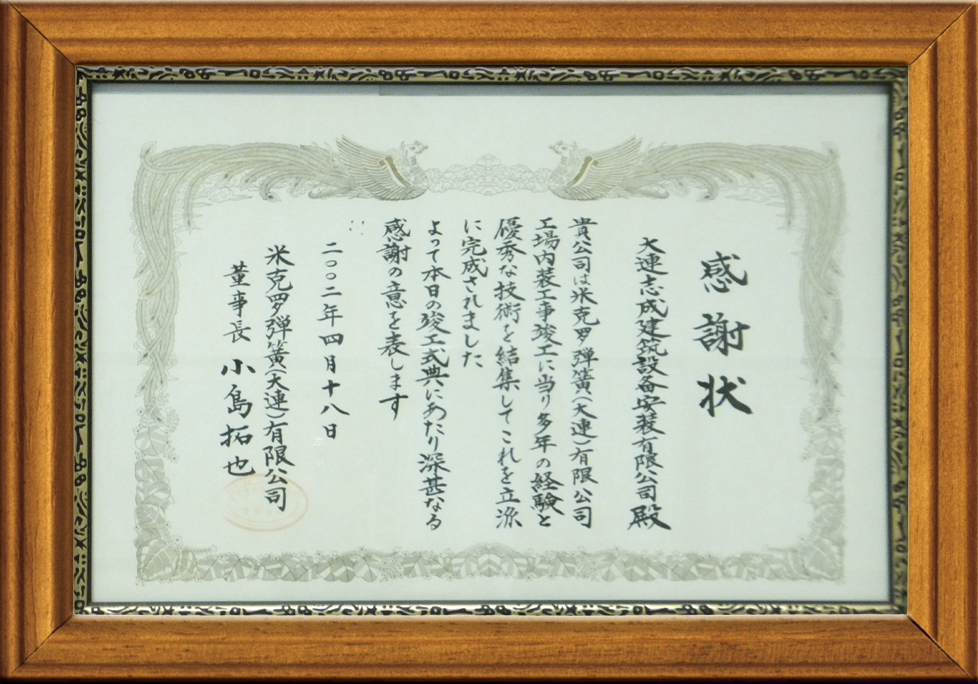 感謝状
大連志成建筑設备安装有限公司殿
貴公司は米克罗弾簧(大連)有限公司
工場内装工事竣工に当り多年の経験と
優秀な技術を結集してこれを立派
に完成されました
よって本日の竣工式典にあたり深甚なる
感謝の意を表します
二〇〇二年四月十八日
米克罗弾簧(大連)有限公司
董事長 小島拓也